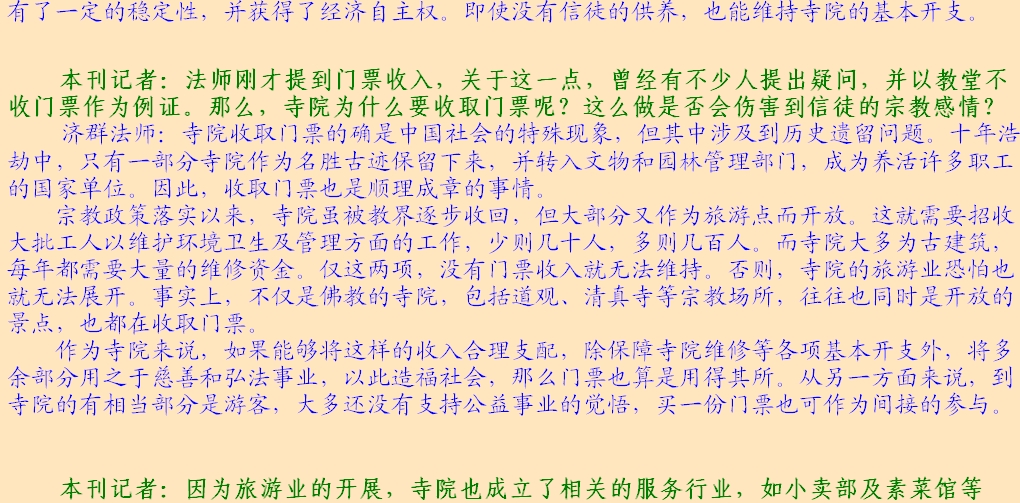 有了一定的稳定性，并获得了经济自主权。即使没有信徒的供养，也能维持寺院的基本开支。
本刊记者：法师刚才提到门票收入，关于这一点，曾经有不少人提出疑问，并以教堂不
收门票作为例证。那么，寺院为什么要收取门票呢？这么做是否会伤害到信徒的宗教感情？
济群法师：寺院收取门票的确是中国社会的特殊现象，但其中涉及到历史遗留问题。十年浩
劫中，只有一部分寺院作为名胜古迹保留下来，并转入文物和园林管理部门，成为养活许多职工
的国家单位。因此，收取门票也是顺理成章的事情。
宗教政策落实以来，寺院虽被教界逐步收回，但大部分又作为旅游点而开放。这就需要招收
大批工人以维护环境卫生及管理方面的工作，少则几十人，多则几百人。而寺院大多为古建筑，
每年都需要大量的维修资金。仅这两项，没有门票收入就无法维持。否则，寺院的旅游业恐怕也
就无法展开。事实上，不仅是佛教的寺院，包括道观、清真寺等宗教场所，往往也同时是开放的
景点，也都在收取门票。
作为寺院来说，如果能够将这样的收入合理支配，除保障寺院维修等各项基本开支外，将多
余部分用之于慈善和弘法事业，以此造福社会，那么门票也算是用得其所。从另一方面来说，到
寺院的有相当部分是游客，大多还没有支持公益事业的觉悟，买一份门票也可作为间接的参与。
本刊记者：因为旅游业的开展，寺院也成立了相关的服务行业，如小卖部及素菜馆等